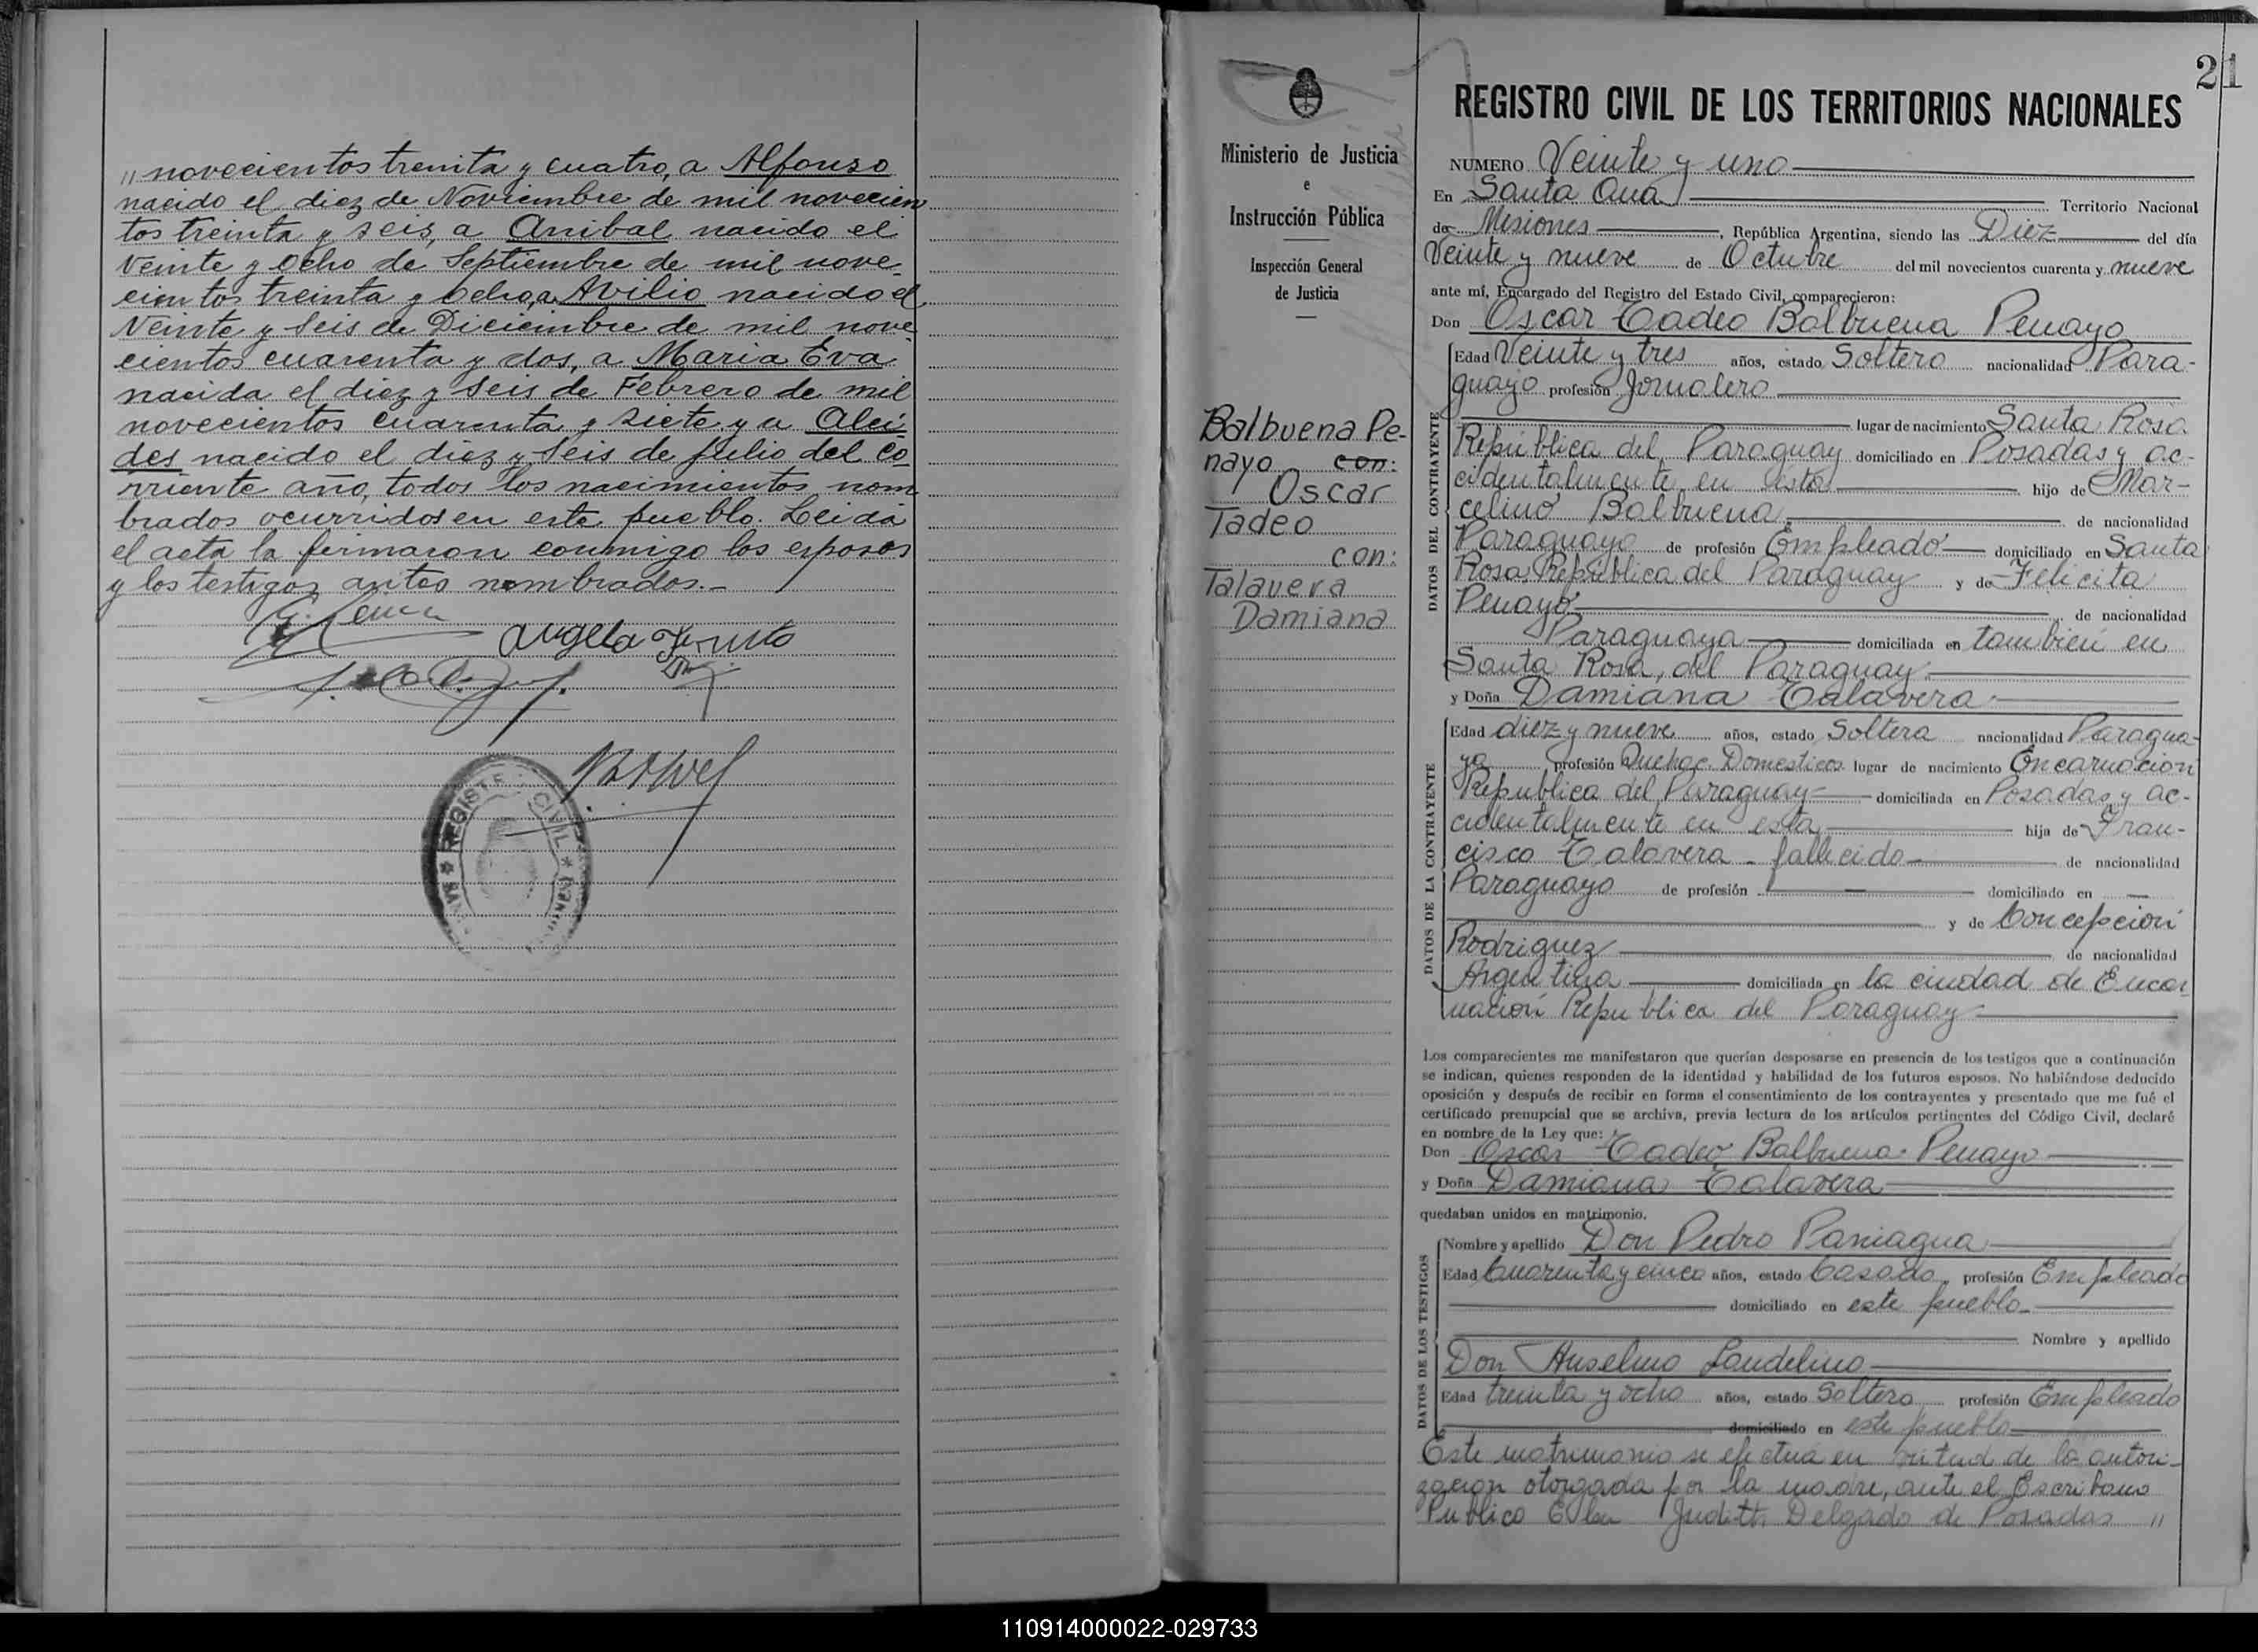 " novecientos treinta y cuatro, a Alfonso
nacido el diez de Noviembre de mil novecien
tos treinta y seis, a Anibal nacido el
Veinte y ocho de Septiembre de mil nove-
cientos treinta y ocho, a Avilio nacido el
Veinte y seis de Diciembre de mil nove
cientos cuarenta y dos, a Maria Eva
nacida el diez y seis de Febrero de mil
novecientos cuarenta y siete y a Alci-
des nacido el diez y seis de julio del co
rriente año, todos los nacimientos nom
brados ocurridos en este pueblo. Leida
el acta la firmaron conmigo los esposos
y los testigos antes nombrados.-
Angela
REGISTRO CIVIL
SANTA ANA
21
Ministerio de Justicia
e
Instrucción Pública
Inspección General
de Justicia
Balbuena Pe-
nayo con:
Oscar
Tadeo
con:
Talavera
Damiana
REGISTRO CIVIL DE LOS TERRITORIOS NACIONALES
NUMERO Veinte y uno
En Santa Ana Territorio Nacional
de Misiones, República Argentina, siendo las Diez del día
Veinte y nueve de Octubre del mil novecientos cuarenta y nueve
ante mí, Encargado del Registro del Estado Civil, comparecieron:
Don Oscar Tadeo Balbuena Penayo
DATOS DEL CONTRAYENTE
Edad Veinte y tres años, estado Soltero nacionalidad Para-
guayo profesión Jornalero
lugar de nacimiento Santa Rosa
República del Paraguay domiciliado en Posadas y ac-
cidentalmente en esta hijo de Mar-
celino Balbuena de nacionalidad
Paraguayo de profesión Empleado domiciliado en Santa
Rosa República del Paraguay y de Felicita
Penayo de nacionalidad
Paraguaya domiciliada en tambien en
Santa Rosa, del Paraguay
y Doña Damiana Talavera
DATOS DE LA CONTRAYENTE
Edad diez y nueve años, estado Soltera nacionalidad Paragua-
ya profesión Quehac. Domesticos lugar de nacimiento Encarnación
Republica del Paraguay domiciliada en Posadas y ac-
cidentalmente en esta hija de Fran-
cisco Talavera - fallecido de nacionalidad
Paraguayo de profesión — domiciliado en —
y de Concepción
Rodriguez de nacionalidad
Argentina domiciliada en la ciudad de Encar
nación Republica del Paraguay
Los comparecientes me manifestaron que querían desposarse en presencia de los testigos que a continuación
se indican, quienes responden de la identidad y habilidad de los futuros esposos. No habiéndose deducido
oposición y después de recibir en forma el consentimiento de los contrayentes y presentado que me fué el
certificado prenupcial que se archiva, previa lectura de los artículos pertinentes del Código Civil, declaré
en nombre de la Ley que:
Don Oscar Tadeo Balbuena Penayo
y Doña Damiana Talavera
quedaban unidos en matrimonio.
DATOS DE LOS TESTIGOS
Nombre y apellido Don Pedro Paniagua
Edad Cuarenta y cinco años, estado Casado profesión Empleado
domiciliado en este pueblo
Nombre y apellido
Don Anselmo Laudelino
Edad treinta y ocho años, estado Soltero profesión Empleado
domiciliado en este pueblo
Este matrimonio se efectua en virtud de la autori-
zacion otorgada por la madre, ante el Escribano
Publico Judith Delgado de Posadas "
110914000022-029733